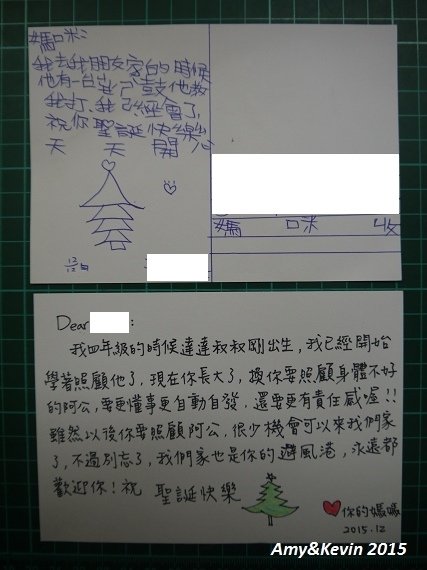 媽咪:
我去我朋友家的時候
他有一台爵士鼓他教
我打,我已經會了,
祝你聖誕快樂
天 天 開心
12/12日
媽 咪 收
Dear :
我四年級的時候達達叔叔剛出生,我已經開始
學著照顧他了,現在你長大了,換你要照顧身體不好
的阿公,要更懂事更自動自發,還要更有責任感喔!!
雖然以後你要照顧阿公,很少機會可以來我們家
了,不過別忘了,我們家也是你的避風港,永遠都
歡迎你!祝 聖誕快樂
你的媽媽
2015.12
Amy&Kevin 2015